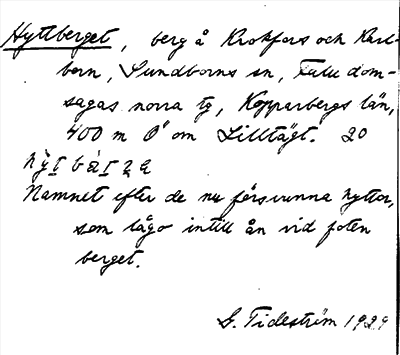 Hyttberget, berg å Krokfors och Karl-
born, Sundborns sn, Falu dom-
sagas norra tg, Kopparbergs län,
400 m Ö om Lilltägt. 20
Namnet efter de nu försvunna hyttor,
som lågo intill ån vid foten
berget.
G. Tideström 1929